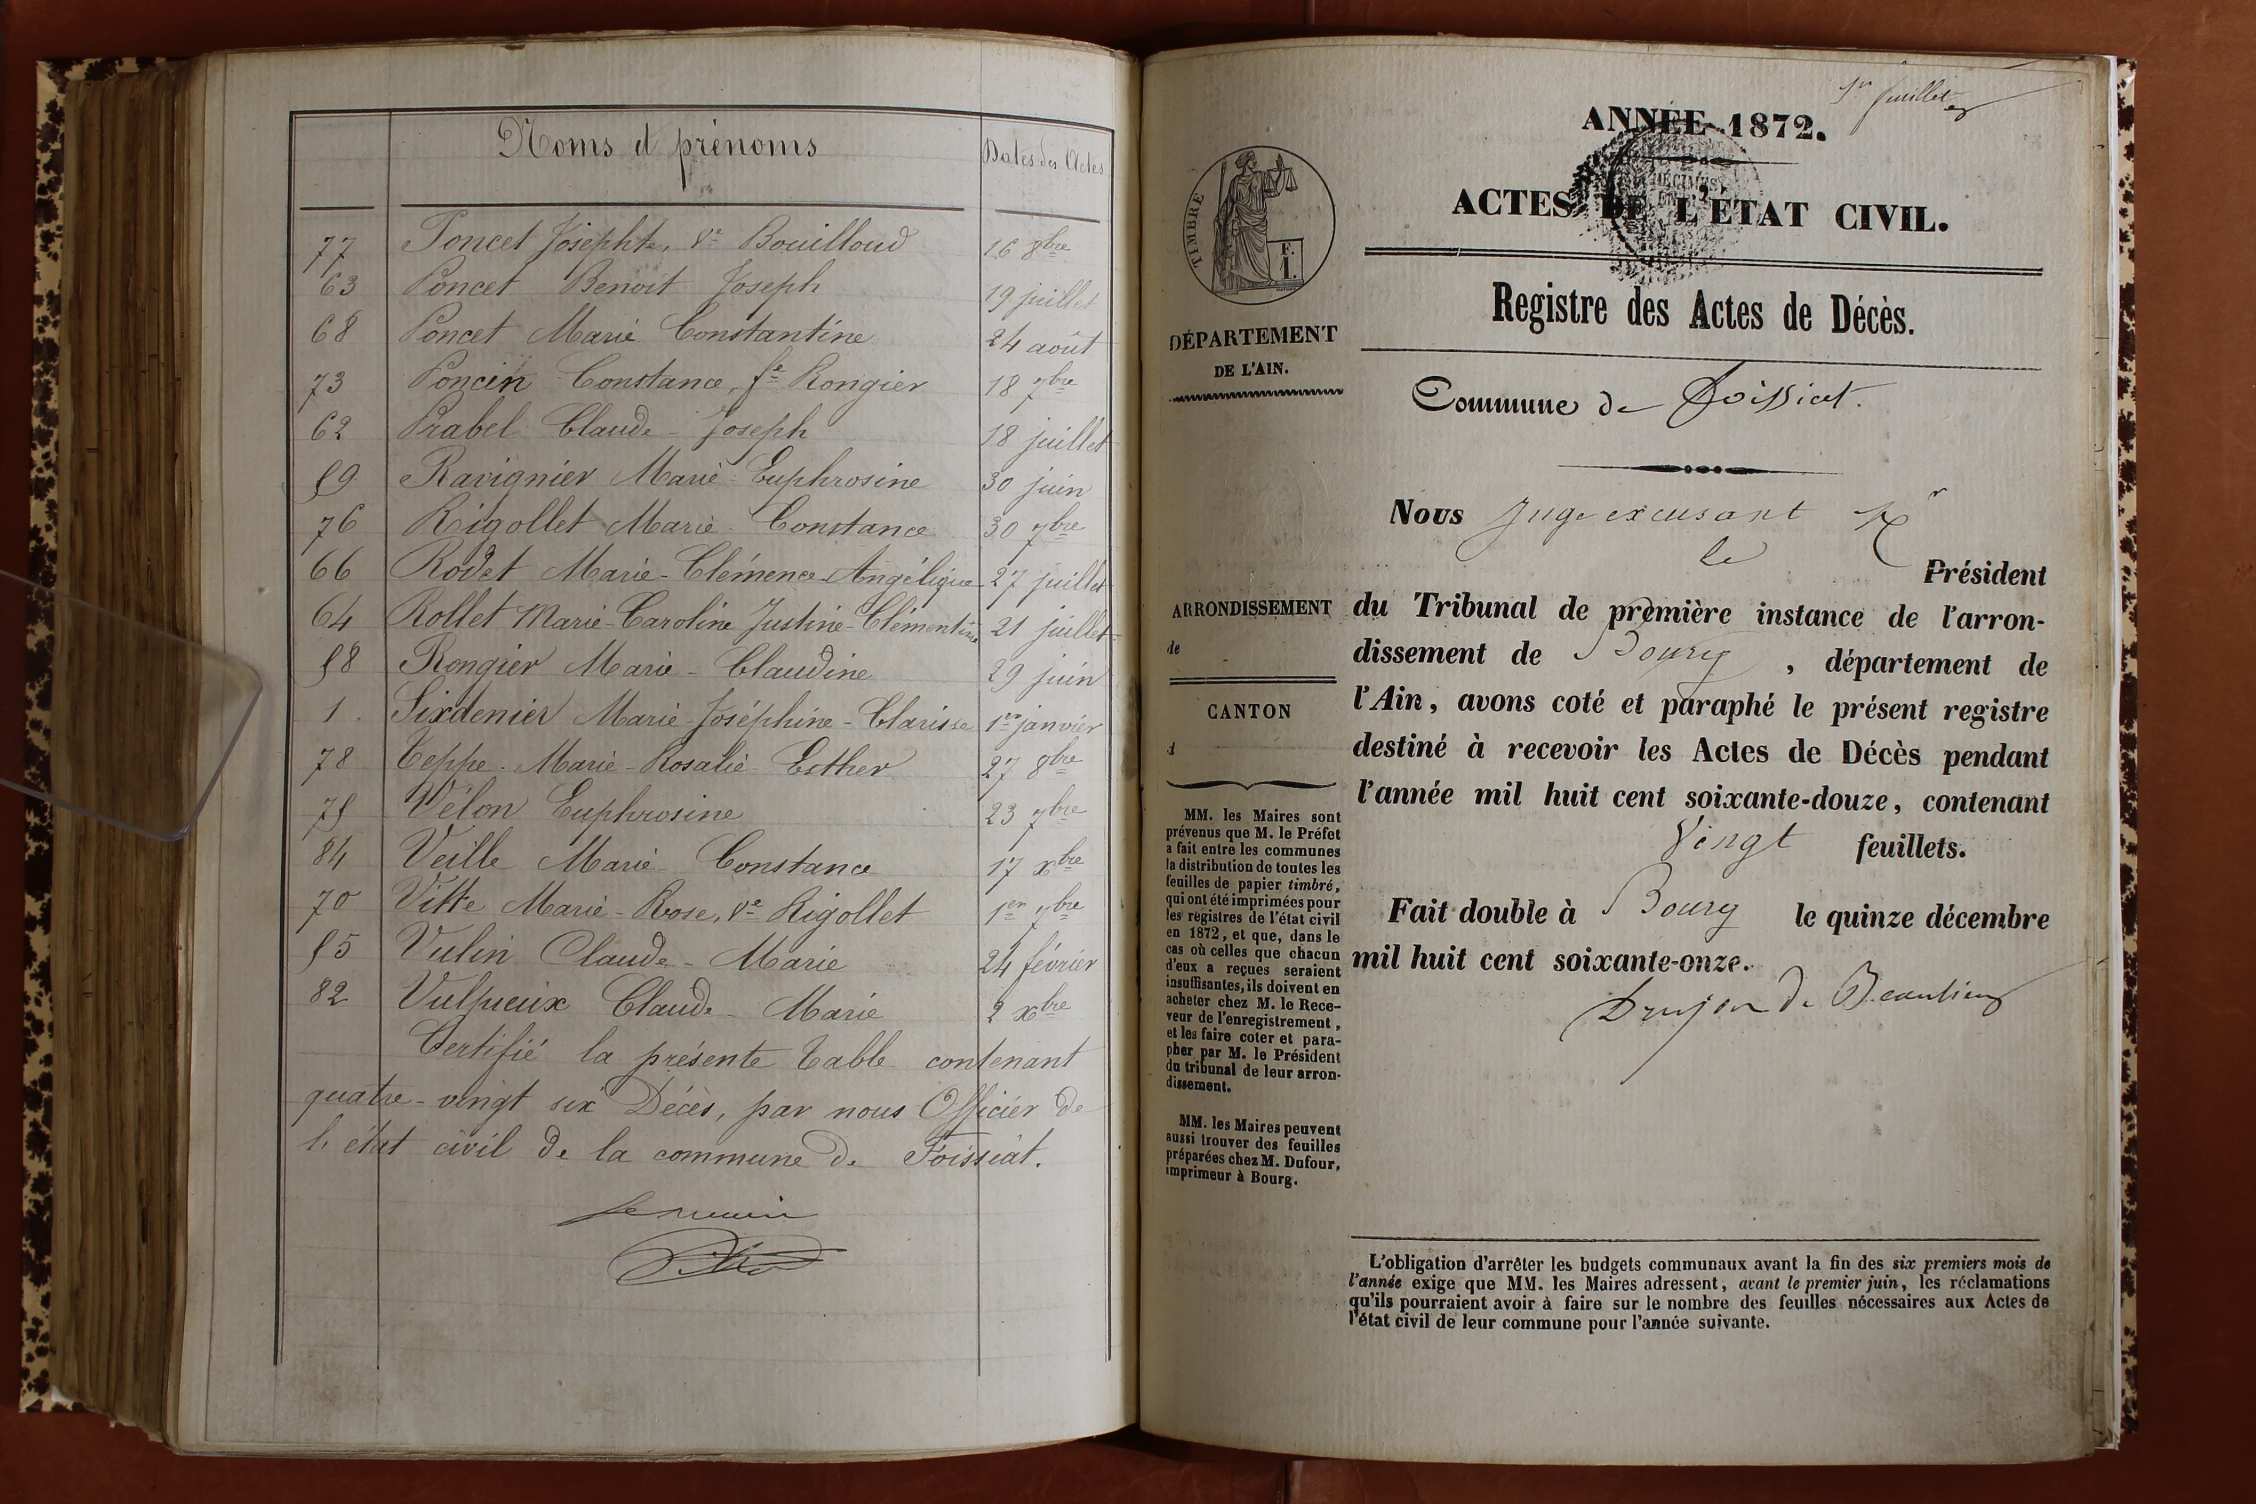 Noms et prénoms Dates des Actes
77 Poncet Josephte, Ve Bouilloud 16 8bre
63 Poncet Benoit Joseph 19 juillet
68 Poncet Marie Constantine 24 août
73 Poncin Constance, fe Rongier 18 7bre
62 Prabel Claude-Joseph 18 juillet
59 Ravignier Marie-Euphrosine 30 juin
76 Rigollet Marie-Constance 30 7bre
66 Rodet Marie-Clémence-Angélique 27 juillet
64 Rollet Marie-Caroline Justine-Clémentine 21 juillet
58 Rongier Marie-Claudine 29 juin
1 Sixdenier Marie-Joséphine-Clarisse 1er janvier
78 Teppe Marie-Rosalie-Esther 27 8bre
75 Vélon Euphrosine 23 7bre
84 Veille Marie-Constance 17 xbre
70 Vitte Marie-Rose, Ve Rigollet 1er 7bre
Vulin Claude-Marie 24 février
82 Vulpueix Claude-Marie 2 xbre
Certifié la présente table contenant
quatre-vingt six Décès, par nous Officier de
l'état civil de la commune de Foissiat.
1er feuillet
ANNÉE 1872.
ACTES DE L'ÉTAT CIVIL.
Registre des Actes de Décès.
Commune de Foissiat.
TIMBRE
F. I.
DÉPARTEMENT
DE L'AIN.
ARRONDISSEMENT
de
CANTON
d
MM. les Maires sont
prévenus que M. le Préfet
a fait entre les communes
la distribution de toutes les
feuilles de papier timbré,
qui ont été imprimées pour
les registres de l'état civil
en 1872, et que, dans le
cas où celles que chacun
d'eux a reçues seraient
insuffisantes, ils doivent en
acheter chez M. le Rece-
veur de l'enregistrement,
et les faire coter et para-
pher par M. le Président
du tribunal de leur arron-
dissement.
MM. les Maires peuvent
aussi trouver des feuilles
préparées chez M. Dufour,
imprimeur à Bourg.
Nous Juge excusant Mr
le Président
du Tribunal de première instance de l'arron-
dissement de Bourg, département de
l'Ain, avons coté et paraphé le présent registre
destiné à recevoir les Actes de Décès pendant
l'année mil huit cent soixante-douze, contenant
Vingt feuillets.
Fait double à Bourg le quinze décembre
mil huit cent soixante-onze.
Drujon de Beaulieu
L'obligation d'arrêter les budgets communaux avant la fin des six premiers mois de
l'année exige que MM. les Maires adressent, avant le premier juin, les réclamations
qu'ils pourraient avoir à faire sur le nombre des feuilles nécessaires aux Actes de
l'état civil de leur commune pour l'année suivante.